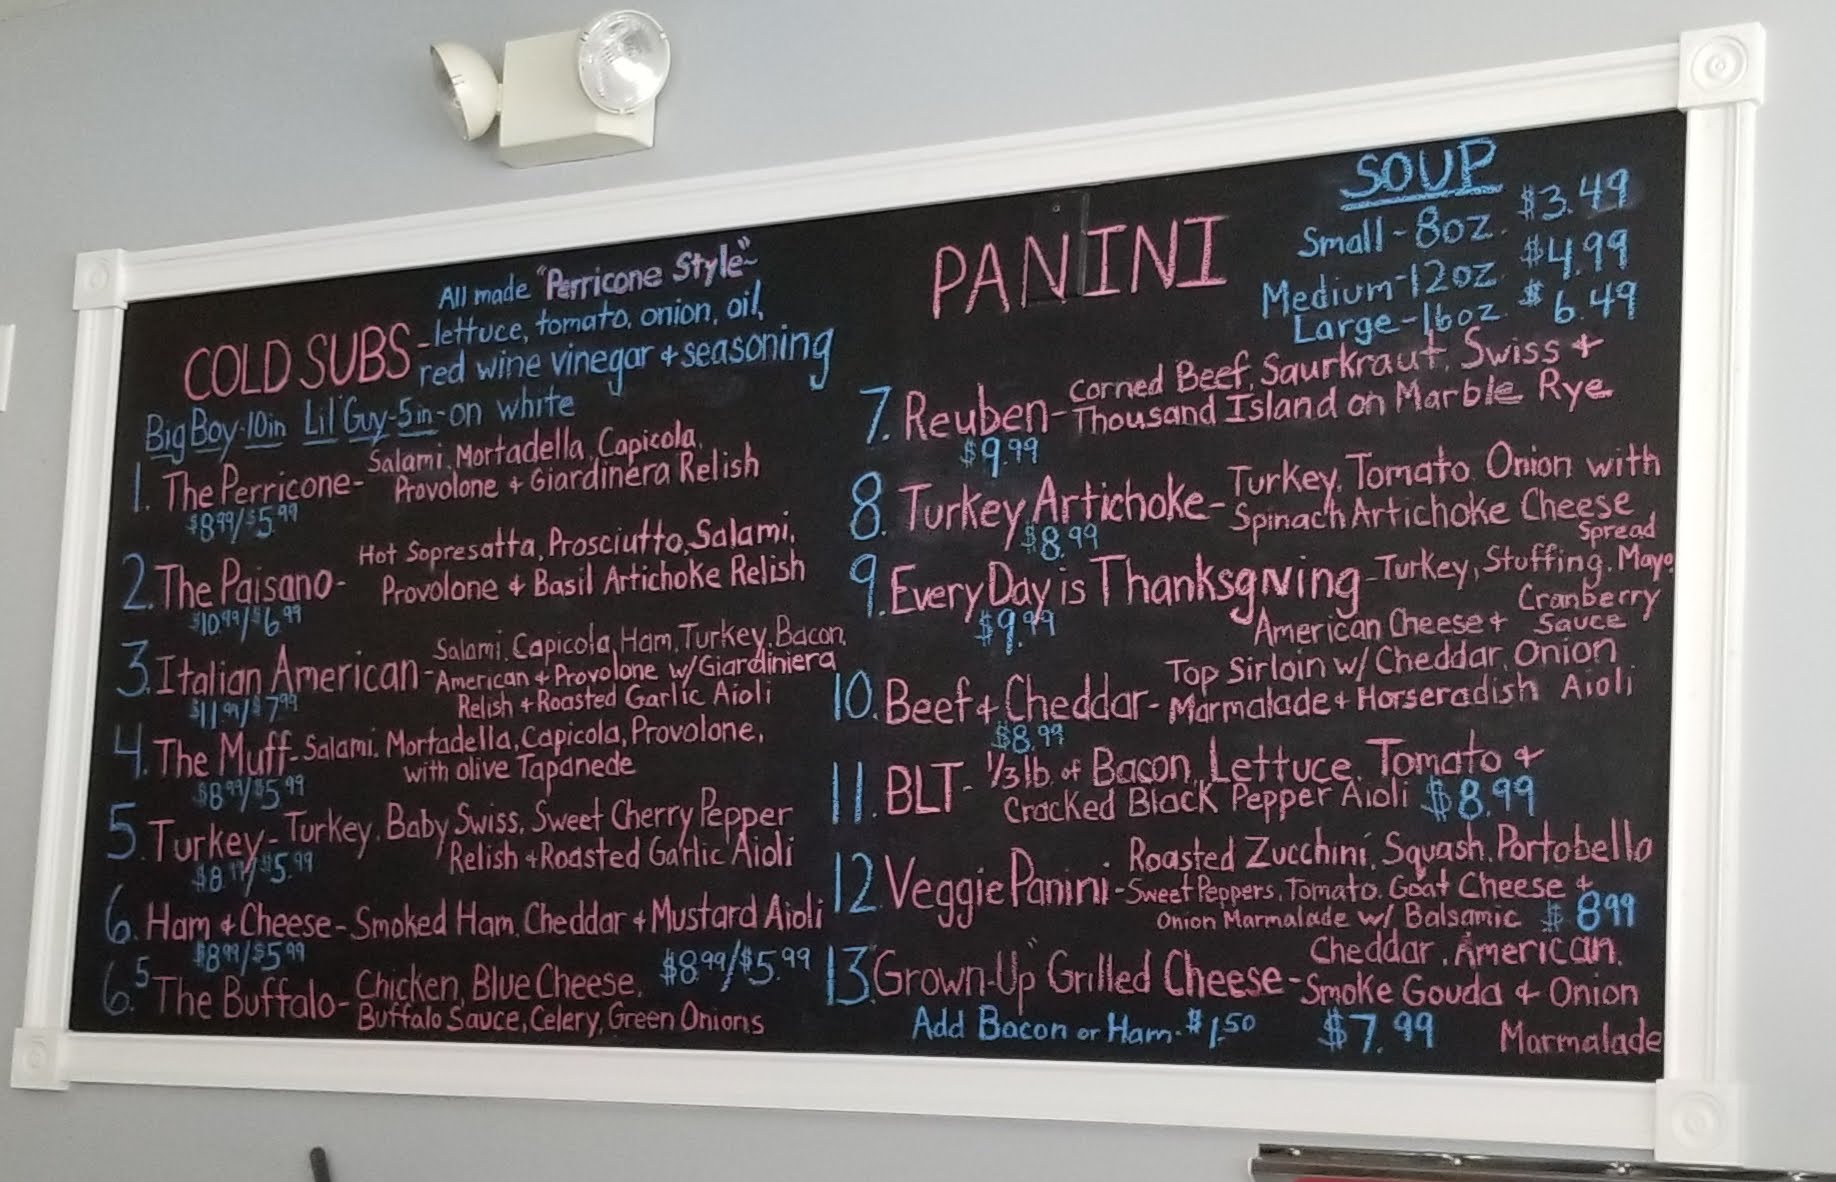 COLD SUBS
All made "Perricone Style"
- lettuce, tomato, onion, oil,
red wine vinegar + seasoning
Big Boy-10in Lil' Guy-5in-on white
1. The Perricone- Salami, Mortadella, Capicola,
Provolone + Giardinera Relish
$8.99/$5.99
2. The Paisano- Hot Sopresatta, Prosciutto, Salami,
Provolone + Basil Artichoke Relish
$10.99/$6.99
3. Italian American- Salami, Capicola, Ham, Turkey, Bacon,
American + Provolone w/ Giardiniera
Relish + Roasted Garlic Aioli
$11.99/$7.99
4. The Muff- Salami, Mortadella, Capicola, Provolone,
with olive Tapanede
$8.99/$5.99
5. Turkey- Turkey, Baby Swiss, Sweet Cherry Pepper
Relish + Roasted Garlic Aioli
$8.99/$5.99
6. Ham + Cheese- Smoked Ham, Cheddar + Mustard Aioli
$8.99/$5.99
6.5 The Buffalo- Chicken, Blue Cheese, $8.99/$5.99
Buffalo Sauce, Celery, Green Onions
PANINI
SOUP
Small-8oz. $3.49
Medium-12oz $4.99
Large-16oz. $6.49
7. Reuben- Corned Beef, Saurkraut, Swiss +
Thousand Island on Marble Rye
$9.99
8. Turkey Artichoke- Turkey, Tomato, Onion with
Spinach Artichoke Cheese
Spread
$8.99
9. Every Day is Thanksgiving- Turkey, Stuffing, Mayo,
Cranberry
American Cheese + Sauce
$9.99
10. Beef + Cheddar- Top Sirloin w/ Cheddar, Onion
Marmalade + Horseradish Aioli
$8.99
11. BLT- 1/3 lb. of Bacon, Lettuce, Tomato +
Cracked Black Pepper Aioli $8.99
12. Veggie Panini- Roasted Zucchini, Squash, Portobello
Sweet Peppers, Tomato, Goat Cheese +
Onion Marmalade w/ Balsamic $8.99
13. "Grown-Up" Grilled Cheese- Cheddar, American,
Smoke Gouda + Onion
Marmalade
Add Bacon or Ham-$1.50 $7.99